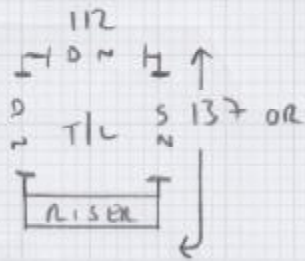 112
DN
DN T/L SN 137 OR
RISER